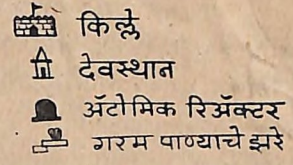 किल्ले
देवस्थान
ॲटोमिक रिॲक्टर
गरम पाण्याचे झरे